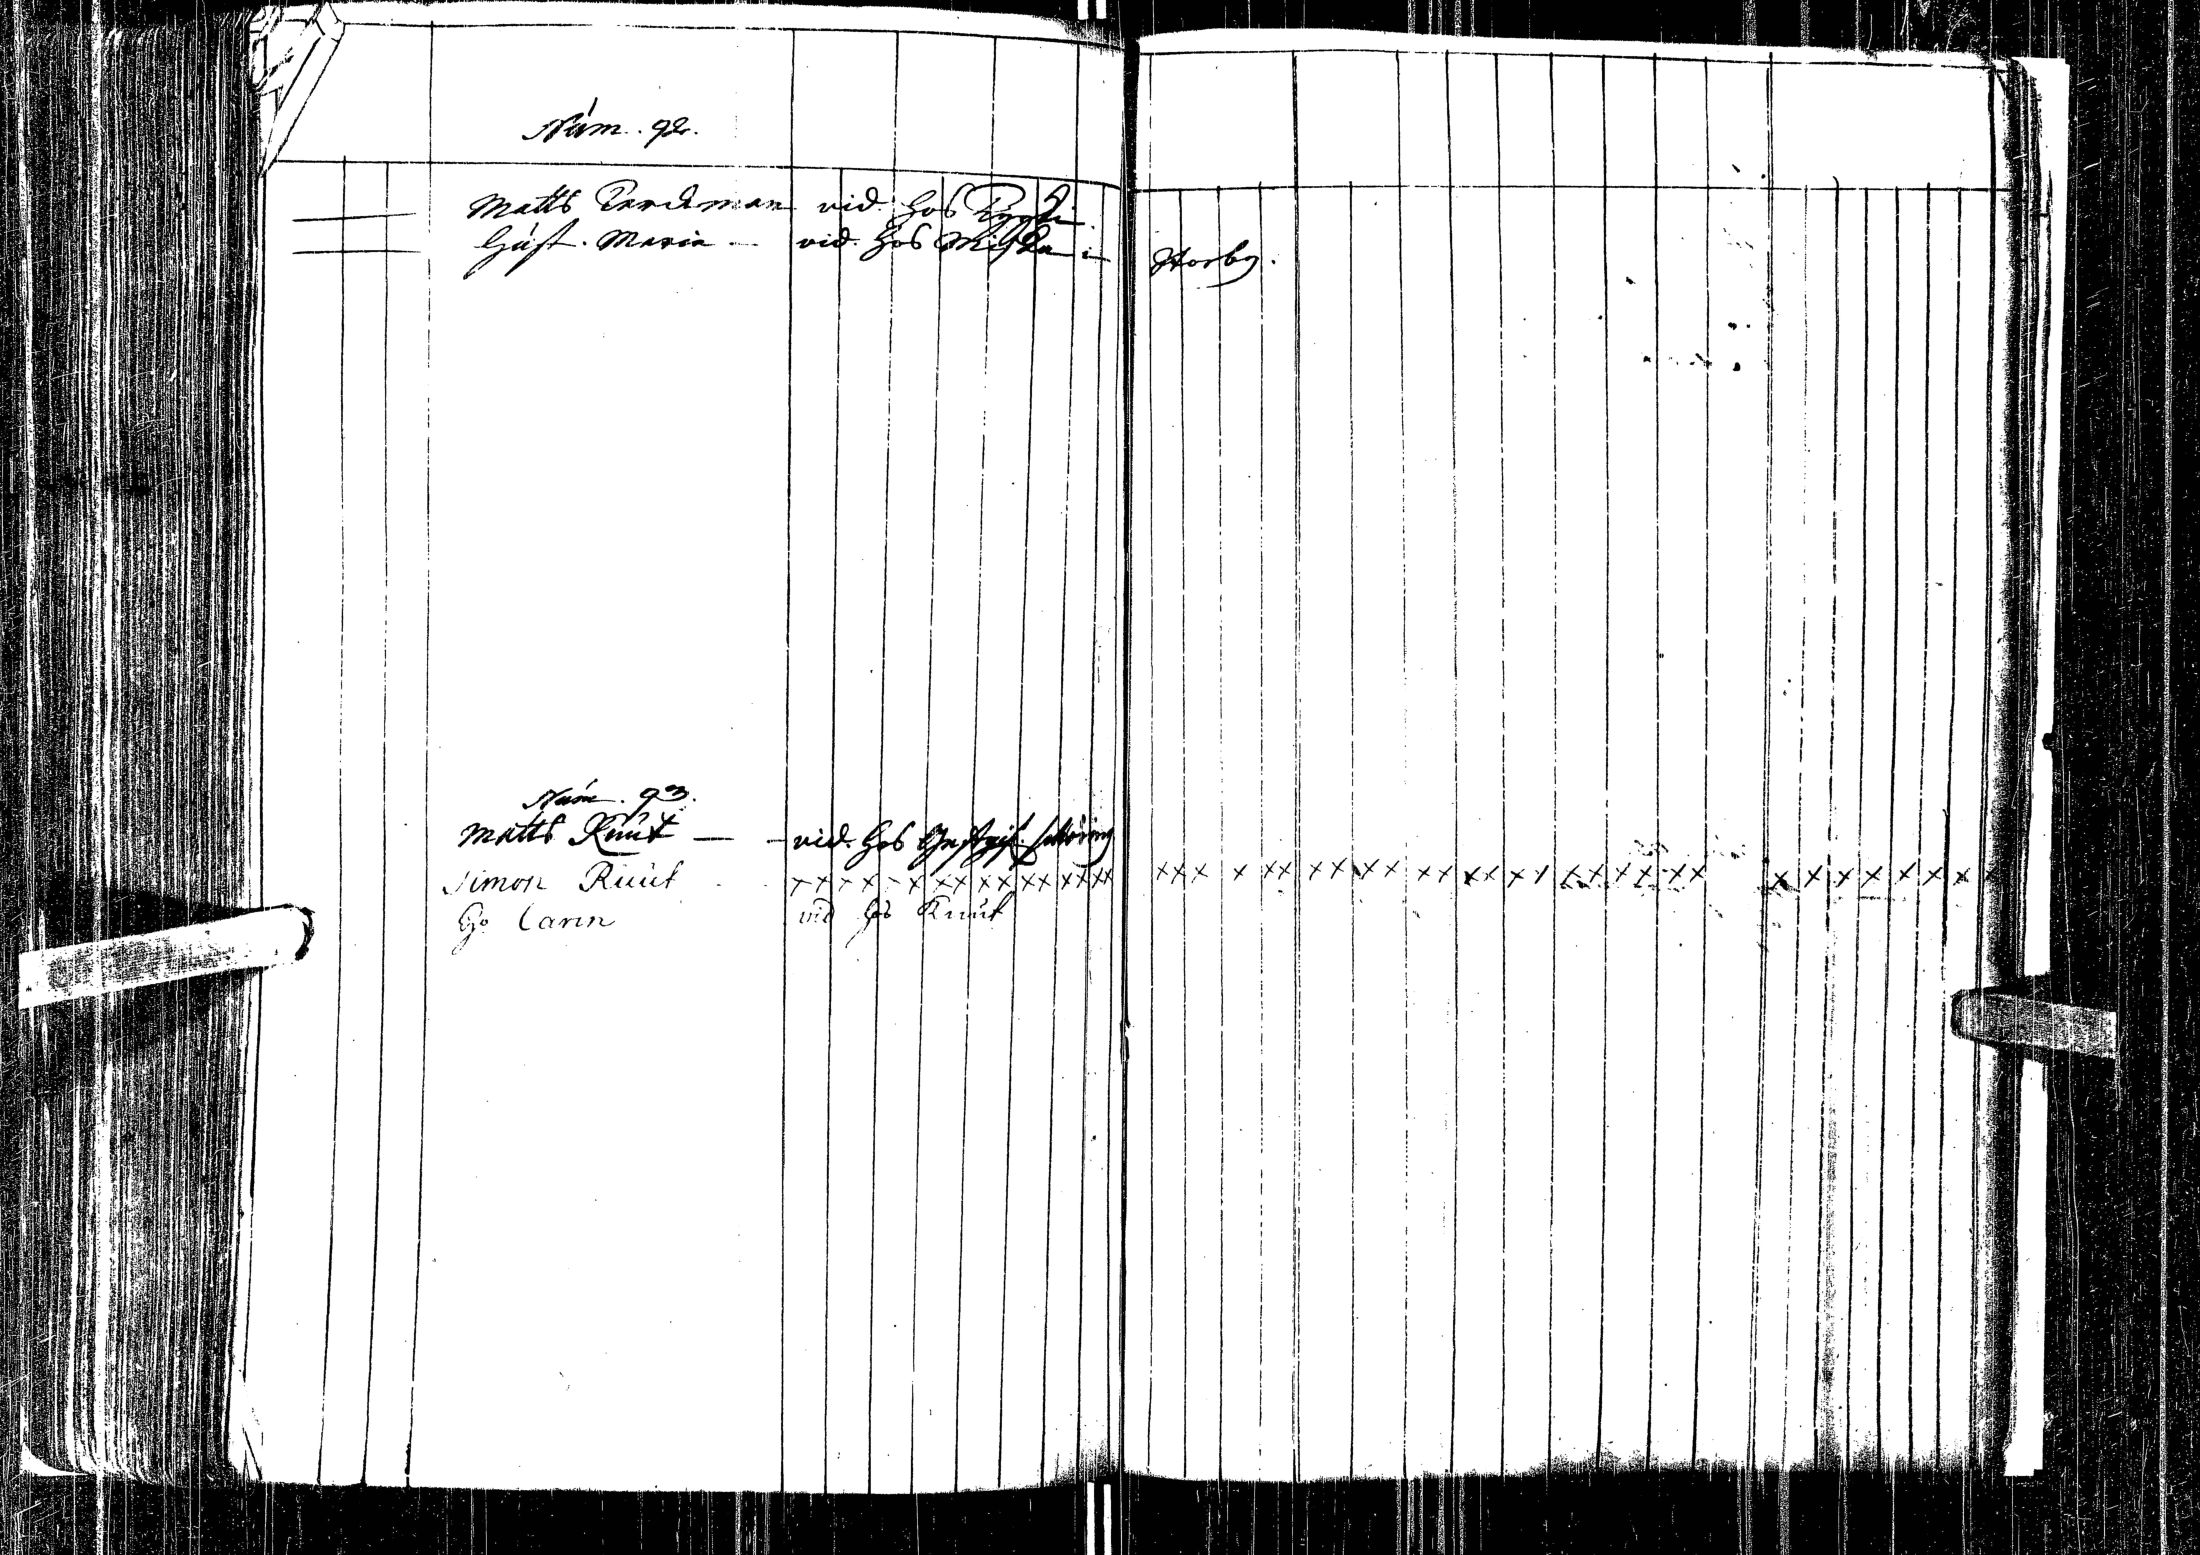 Núm. 92.
Matts Tarckman vid. hos
Húst. Maria — vid. hos Miska i Storby.
Núm. 93.
Matts Knút — vid. hos
Simon Knút x x x x x x x x x x x x x x x x x x x x x x x x x x x x x x x x x x x x x x x x x x
Hо Carin vid hos Knút